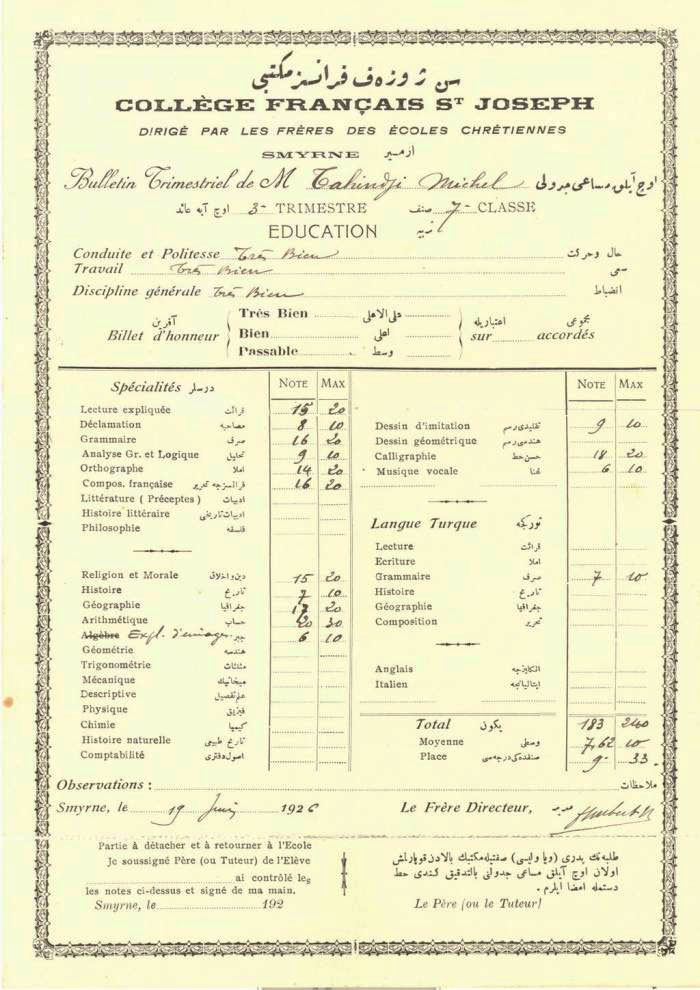 سن ژوزه ف فرانسز مكتبى
COLLÈGE FRANÇAIS ST JOSEPH
DIRIGÉ PAR LES FRÈRES DES ÉCOLES CHRÉTIENNES
SMYRNE ازمير
Bulletin Trimestriel de M Tahindji Michel اوچ آيلق مساعى جدولى
اوچ آيه عائد 3e TRIMESTRE صنف 7e CLASSE
EDUCATION
Conduite et Politesse Très Bien حال وحركت
Travail Très Bien سعى
Discipline générale Très Bien انضباط
آفرين Billet d'honneur
Très Bien على الاعلى
Bien اعلى
Passable وسط
اعتباريله مجموعى
sur accordés
Spécialités درسلر NOTE MAX
Lecture expliquée قرائت 15 20
Déclamation مصاحبه 8 10
Grammaire صرف 16 20
Analyse Gr. et Logique تحليل 9 10
Orthographe املا 14 20
Compos. française فرانسزجه تحرير 16 20
Littérature (Préceptes) ادبيات
Histoire littéraire ادبيات تاريخى
Philosophie فلسفه
Religion et Morale دين واخلاق 15 20
Histoire تاريخ 7 10
Géographie جغرافيا 17 20
Arithmétique حساب 20 30
Algèbre Expl. d'images جبر 6 10
Géométrie هندسه
Trigonométrie مثلثات
Mécanique ميخانيك
Descriptive
Physique فيزيق
Chimie كيميا
Histoire naturelle تاريخ طبيعى
Comptabilité اصول دفترى
NOTE MAX
Dessin d'imitation تقليدى رسم 9 10
Dessin géométrique هندسى رسم
Calligraphie حسن خط 18 20
Musique vocale غنا 6 10
Langue Turque توركجه
Lecture قرائت
Ecriture املا
Grammaire صرف 7 10
Histoire تاريخ
Géographie جغرافيا
Composition تحرير
Anglais انكليزجه
Italien ايتاليانجه
Total يكون 183 240
Moyenne وسطى 7,62 10
Place صنفده كى درجه سى 9e 33
Observations : ملاحظات
Smyrne, le 19 Juin 1926 Le Frère Directeur, مدير
Partie à détacher et à retourner à l'Ecole
Je soussigné Père (ou Tuteur) de l'Elève
ai contrôlé les
les notes ci-dessus et signé de ma main.
Smyrne, le 192
طلبه نك پدرى (ويا وليسى) صفتيله مكتبك بالادن قوپارلمش
اولان اوچ آيلق مساعى جدولنى بالتدقيق كندى خط
دستمله امضا ايلرم .
Le Père (ou le Tuteur)